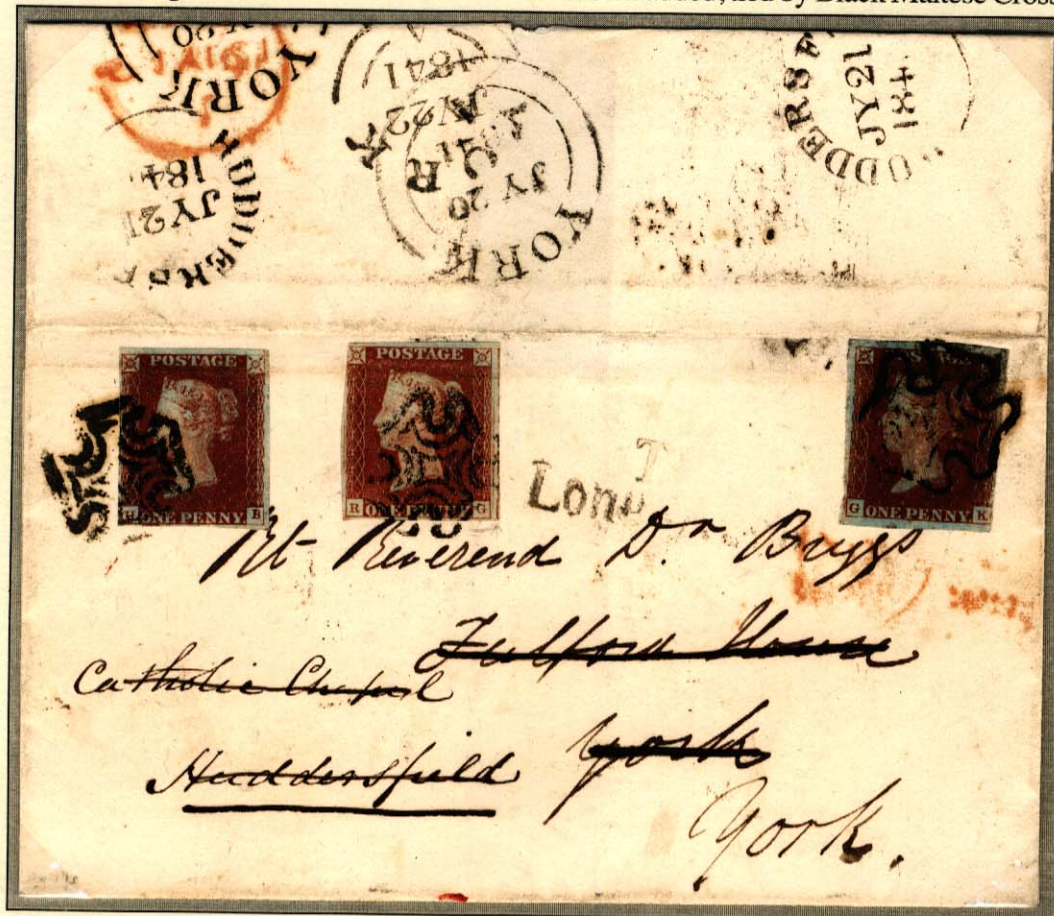 tied by Black Maltese Cross
YORK
JY 20
HUDDERSF
JY 21
184
YORK
JY 20
1841
JY 22
1841
UDDERSF
JY 21
184
POSTAGE
ONE PENNY B
POSTAGE
R ONE PENNY G
POSTAGE
G ONE PENNY K
T
Lon
Rt Reverend Dr Briggs
Fulford House
Catholic Chapel
York
Huddersfield
York.